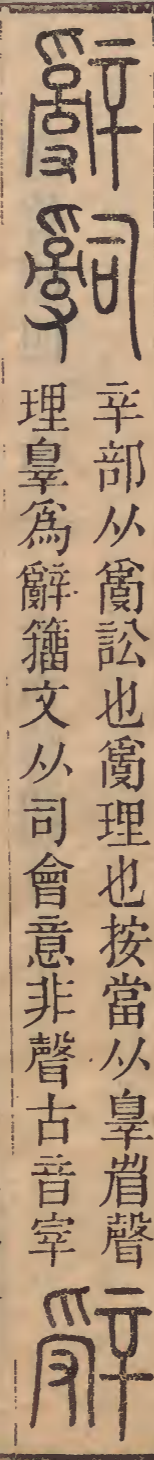 辭𤔲
辛部从𤔔訟也𤔔理也按當从辠省聲
理辠爲辭籀文从司會意非聲古音宰
辤